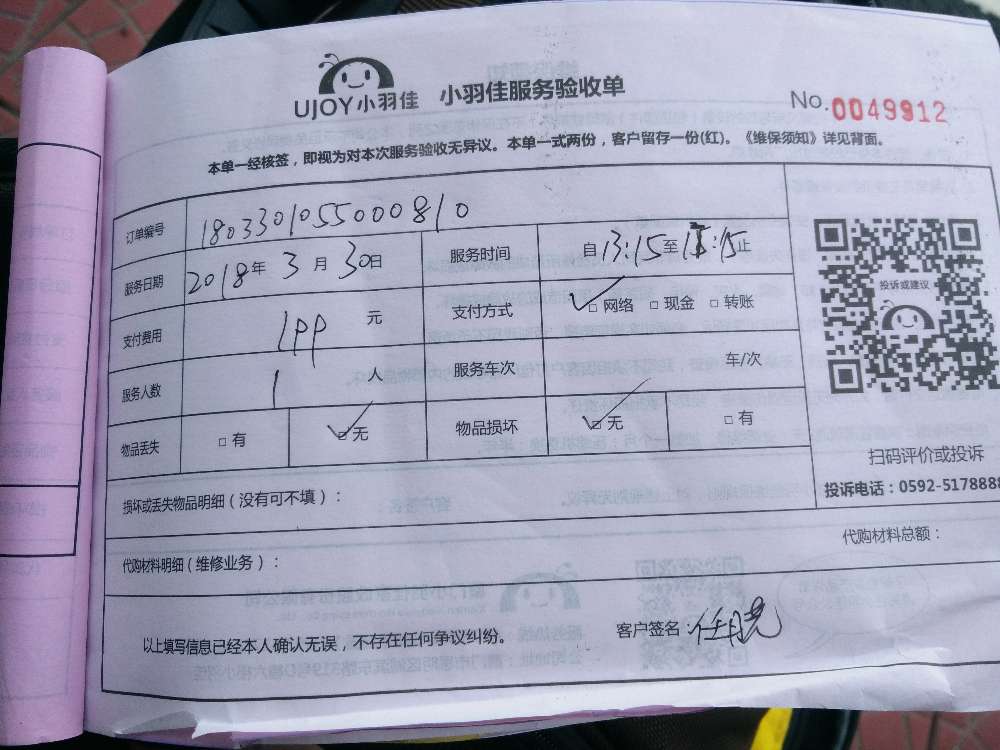 UJOY小羽佳 小羽佳服务验收单 No. 0049912
本单一经核签，即视为对本次服务验收无异议。本单一式两份，客户留存一份(红)。《维保须知》详见背面。
订单编号 1803301055000810
服务日期 2018年3月30日 服务时间 自13:15至15:15止
支付费用 1PP 元 支付方式 □网络 □现金 □转账
服务人数 1 人 服务车次 车/次
物品丢失 □有 □无 物品损坏 □无 □有
投诉或建议
扫码评价或投诉
投诉电话：0592-5178888
损坏或丢失物品明细（没有可不填）：
代购材料明细（维修业务）： 代购材料总额：
以上填写信息已经本人确认无误，不存在任何争议纠纷。 客户签名：任晓